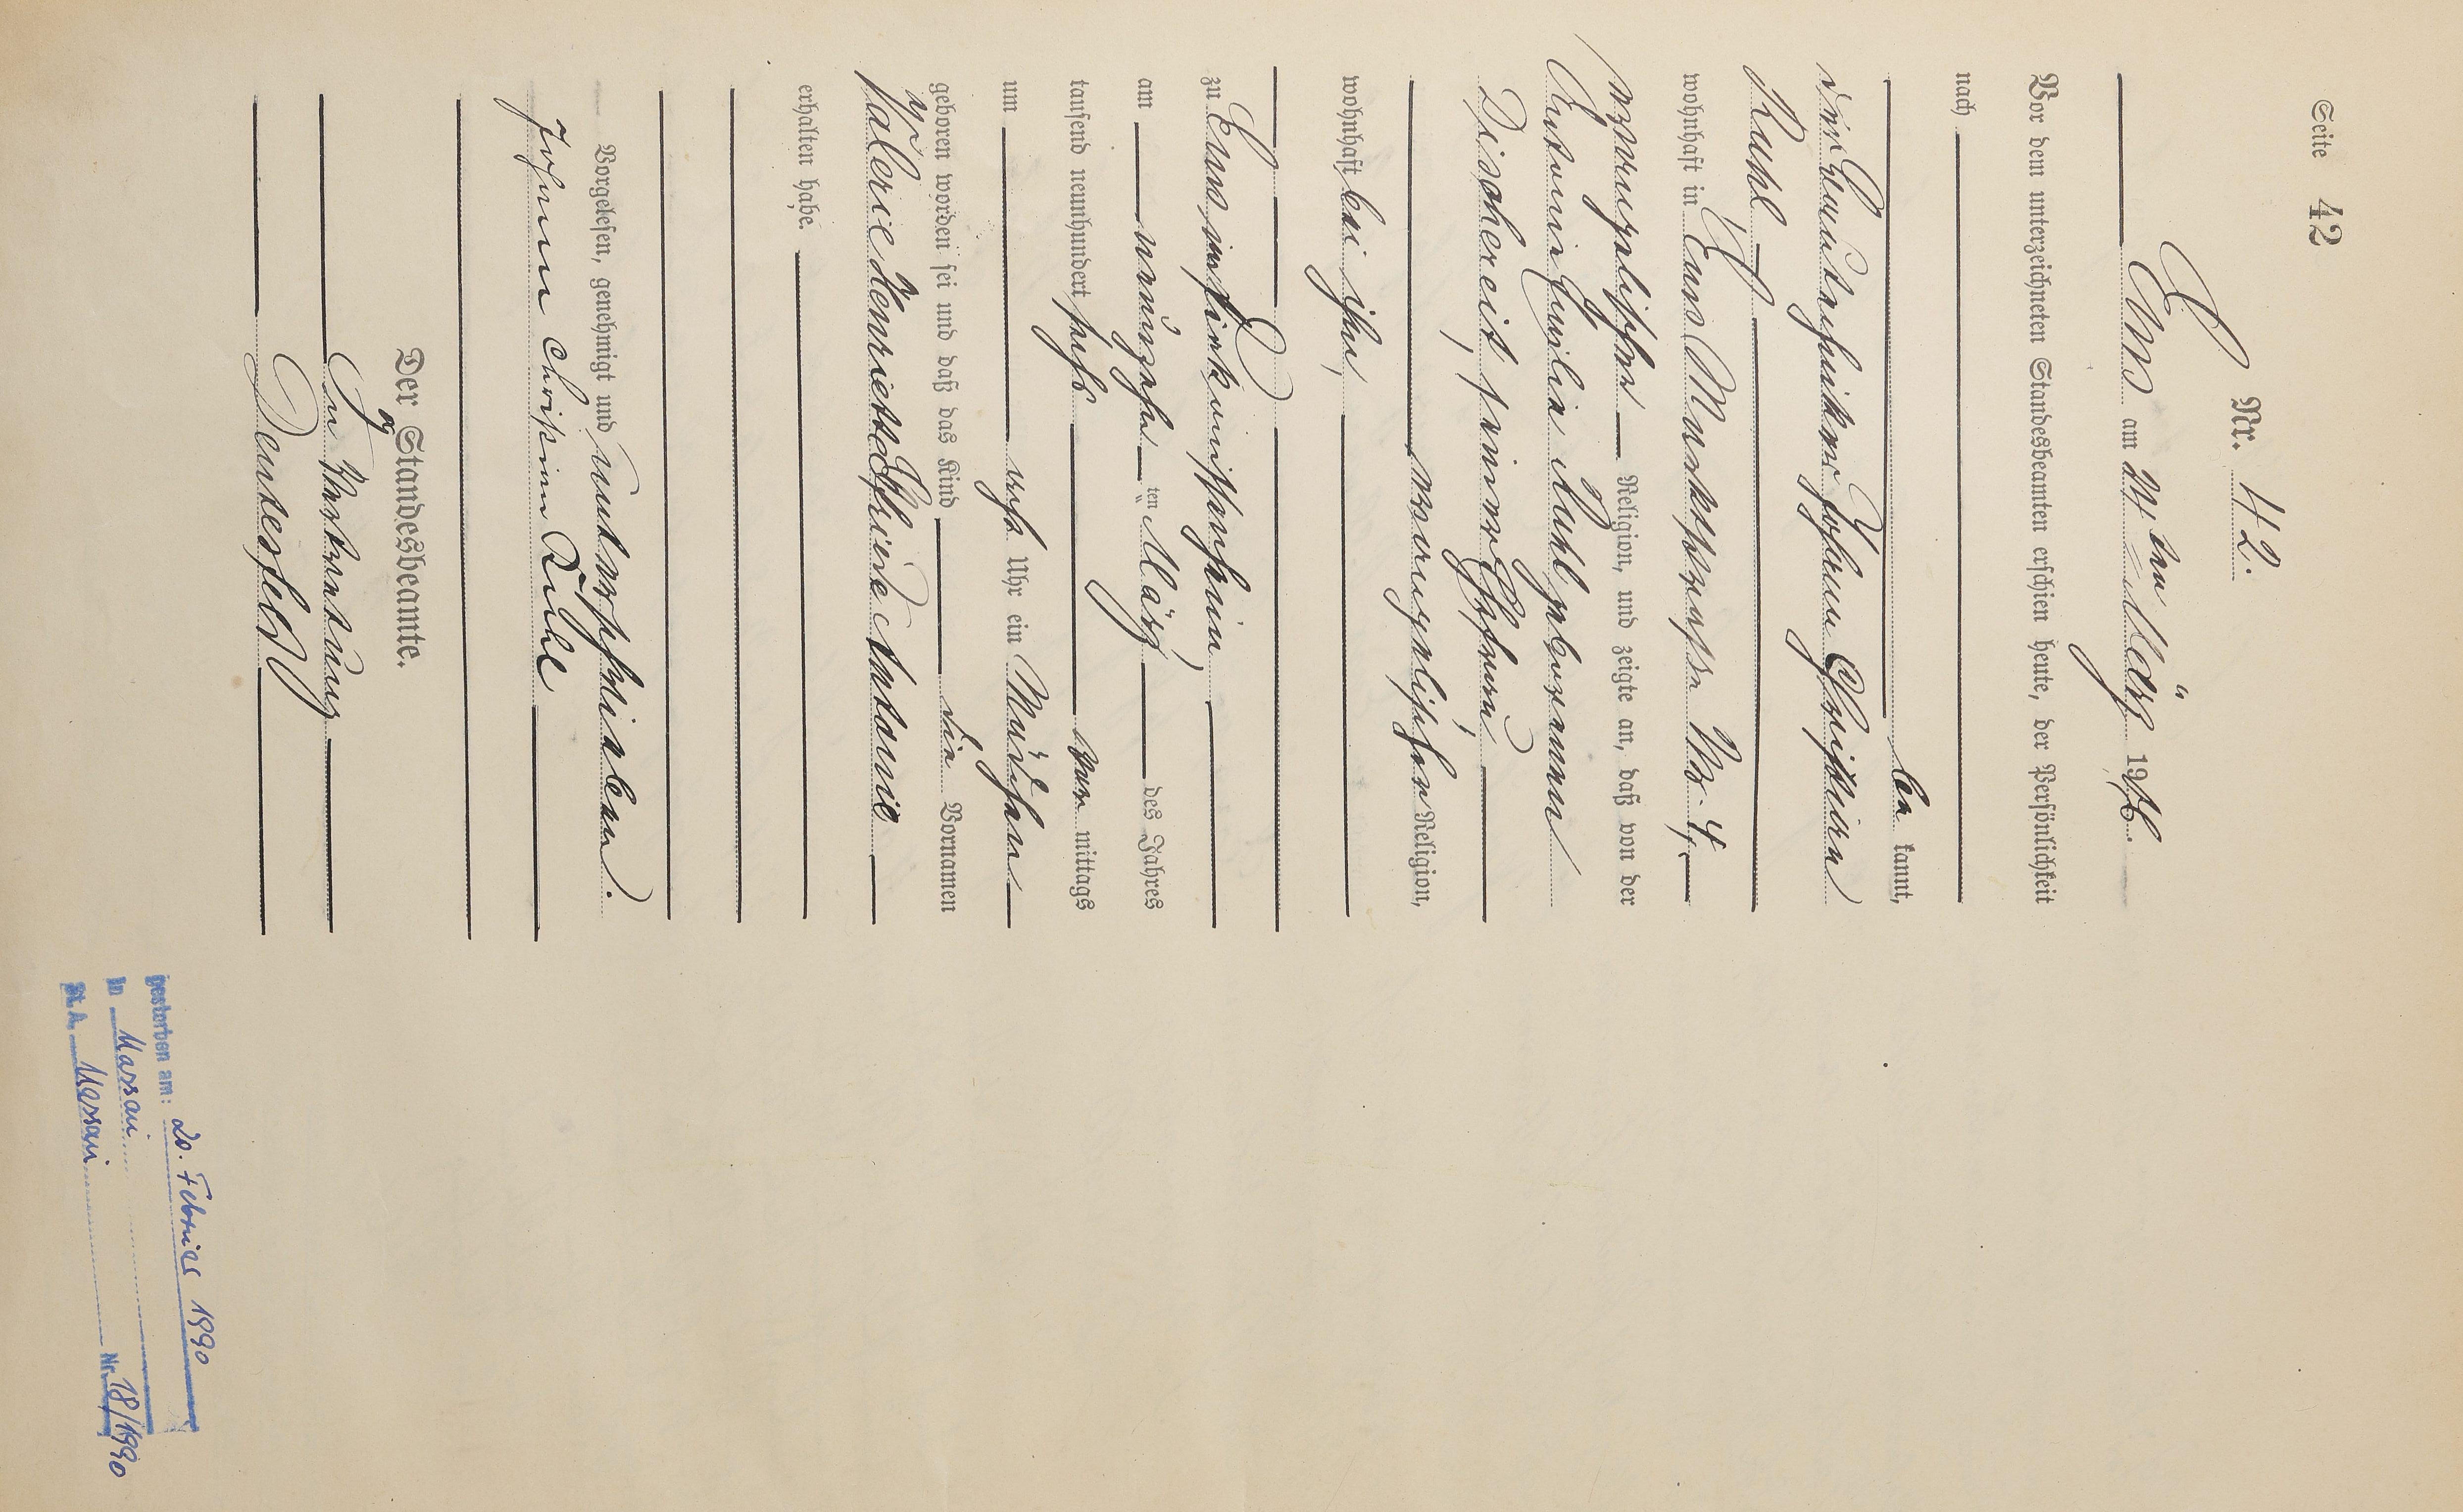 Seite 42
Nr. 42.
Ems am 21ten März 1906.
Vor dem unterzeichneten Standesbeamten erschien heute, der Persönlichkeit
nach
be kannt,
der Johann Christian
Ruhl
wohnhaft in Ems, Marktstrasse Nr. 4,
evangelischer Religion, und zeigte an, daß von der
Antonie Emilie Ruhl geborenen
Dischereit, seiner Ehefrau,
evangelischer Religion,
wohnhaft bei ihm,
zu Ems in seiner
am neunzehn ten März des Jahres
tausend neunhundert sechs vor mittags
um acht Uhr ein Mädchen
geboren worden sei und daß das Kind die Vornamen
Valerie Henriette Frieda Antonie
erhalten habe.
Vorgelesen, genehmigt und unterschrieben.
Johann Christian Ruhl
Der Standesbeamte.
In Vertretung
gestorben am: 20. Februar 1990
in Nassau
St. A. Nassau Nr. 18/1990